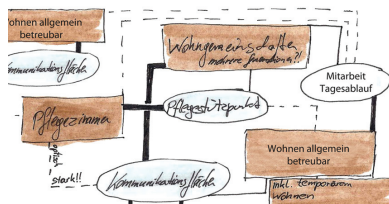 Wohnen allgemein
betreubar
Kommunikationsfläche
Wohngemeinschaften
mehrere Generationen?!
Mitarbeit
Tagesablauf
Pflegezimmer
Pflegestützpunkt
optisch
stark!!
Wohnen allgemein
betreubar
Kommunikationsfläche
inkl. temporärem
Wohnen